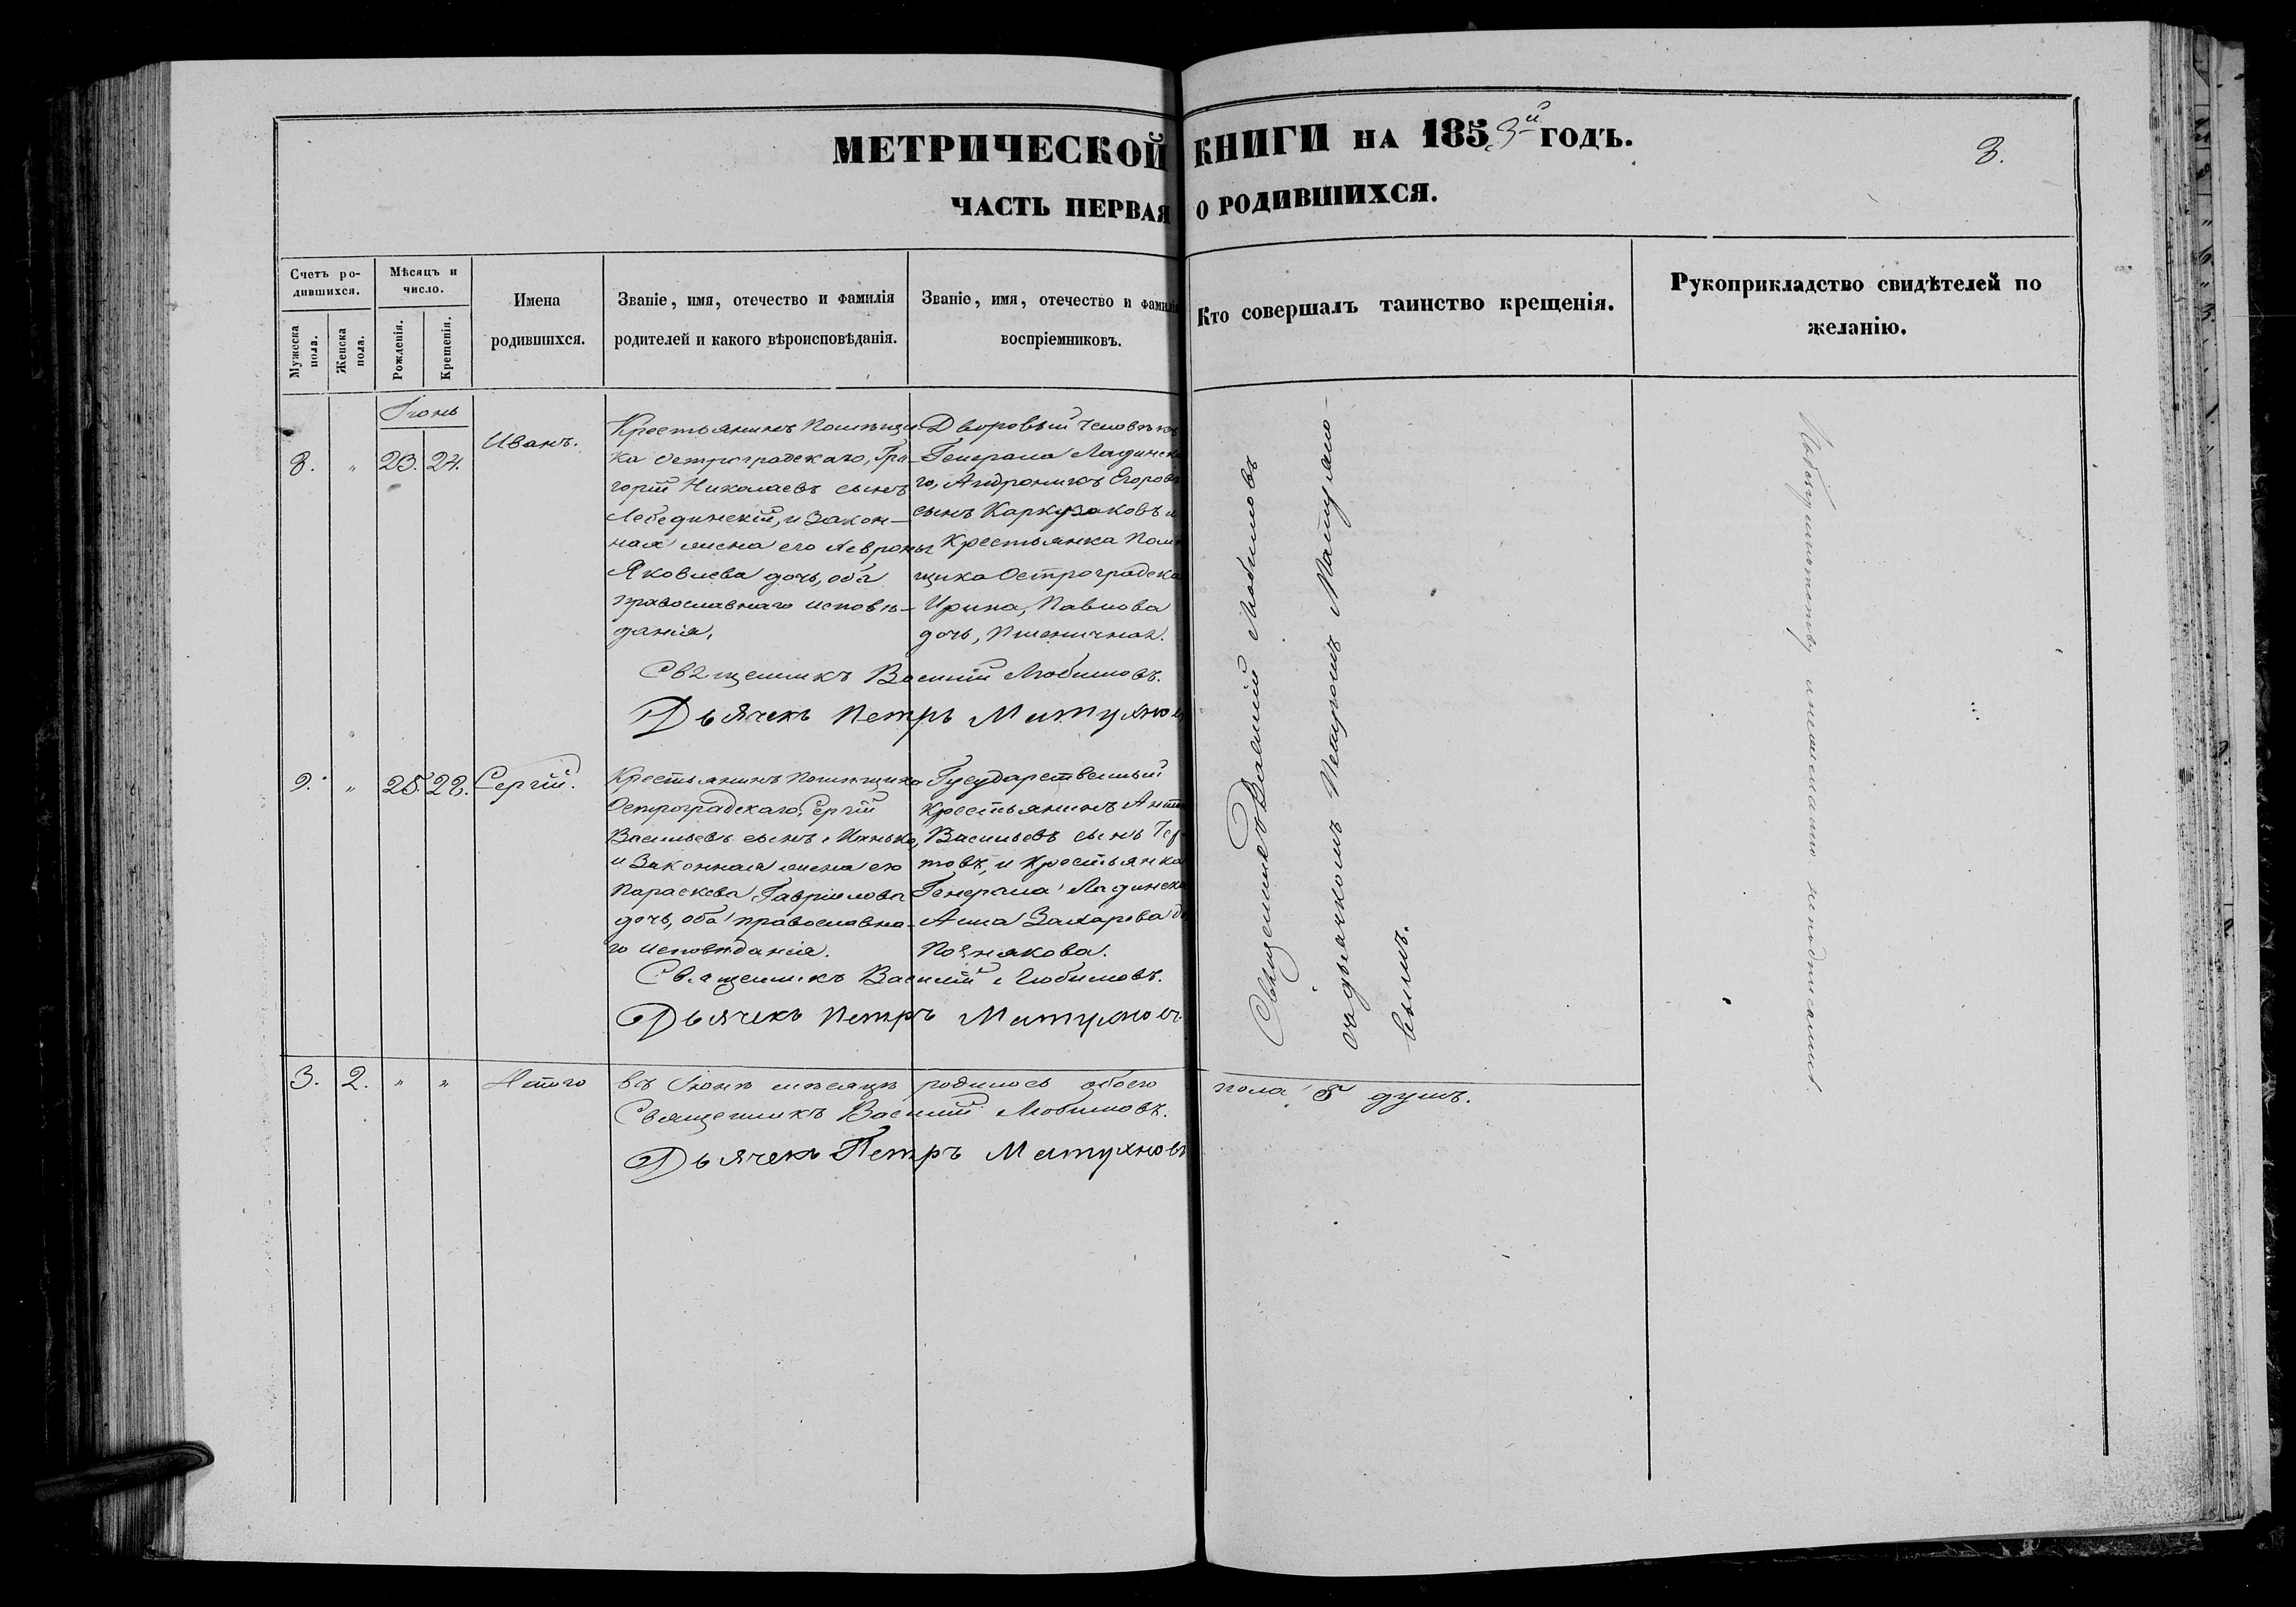 МЕТРИЧЕСКОЙ КНИГИ НА 1853й ГОДЪ.
8.
ЧАСТЬ ПЕРВАЯ О РОДИВШИХСЯ.
Счетъ ро-
дившихся.
Мужеска
пола.
Женска
пола.
Мѣсяцъ и
число.
Рожденія.
Крещенія.
Имена
родившихся.
Званіе, имя, отечество и фамилія
родителей и какого вѣроисповѣданія.
Званіе, имя, отечество и фамилія
воспріемниковъ.
Кто совершалъ таинство крещенія.
Рукоприкладство свидѣтелей по
желанію.
Іюнь
8. " 23. 24.
Иванъ.
Крестьянинъ Помѣщи
ка Остроградскаго, Гри-
горій Николаевъ сынъ
Лебединскій, и Закон-
ная жена его
Яковлева дочь, оба
православнаго исповѣ-
данія.
Дворовый Человѣкъ
Генерала Ладинска
го, Андроникъ Егоровъ
сынъ Каркузаковъ и
Крестьянка Помѣ
щика Остроградска
Ирина, Павлова
дочь, Пшеничная.
Священникъ Василій Любимовъ.
Дьячекъ Петръ Матухновъ
9. " 25. 28.
Сергій.
Крестьянинъ Помѣщика
Остроградскаго, Сергій
Васильевъ сынъ
и Законная жена его
Параскева Гавріилова
дочь, оба православна-
го исповѣданія.
Государственный
крестьянинъ
Васильевъ сынъ
товъ, и крестьянка
Генерала Ладинска
Анна Захарова до
Познякова.
Священникъ Василій Любимовъ.
Дьячекъ Петръ Матухновъ
3. 2. " " Итого въ Іюнѣ мѣсяцѣ родилось обоего пола 5 душъ.
Священникъ Василій Любимовъ.
Дьячекъ Петръ Матухновъ
Священникъ Василій Любимовъ
съ дьячкомъ Петромъ Матухно-
вымъ.